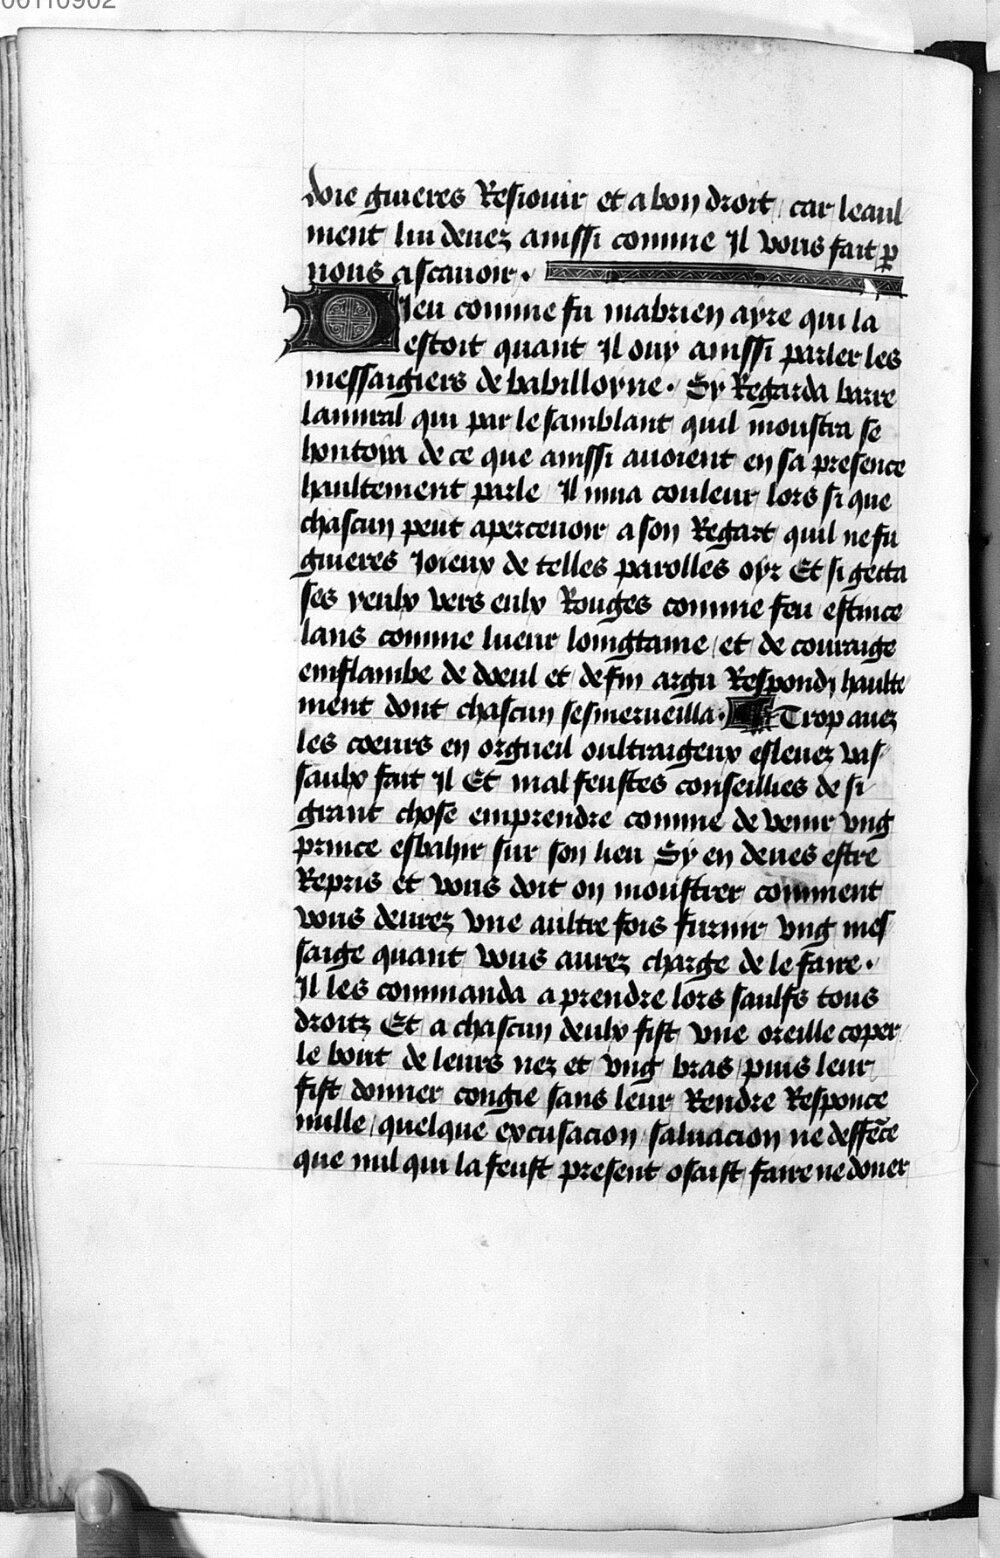 00110902
doie guieres Resiouir et a bon droit car leaul
ment lui deuez ainssi comme Il vous fait p
nous ascauoir.
Dieu comme fu mabrien ayre qui la
estoit quant Il ouy ainssi parler les
messaigiers de babilloyne. Sy Regarda barre
lamiral qui par le samblant quil moustra se
hontoia de ce que ainssi auoient en sa presence
haultement parle Il mua couleur lors si que
chascun peut aperceuoir a son Regart quil ne fu
guieres Joieux de telles parolles oyr Et si gecta
ses yeulx vers eulx Rouges comme feu estince
lans comme lueur loingtaine et de couraige
emflambe de doeul et de fin argu Respondi haulte
ment dont chascun sesmerueilla. Trop auez
les coeurs en orgueil oultraigeux esleuez vas
saulx fait Il Et mal feustes conseillies de si
grant chose emprendre comme de venir vng
prince esbahir sur son lieu Sy en deues estre
Repris et vous doit on moustrer comment
vous deurez vne aultre fois furnir vng mes
saige quant vous aurez charge de le faire.
Il les commanda a prendre lors saulfs tous
droitz Et a chascun deulx fist vne oreille coper
le bout de leurs nez et vng bras puis leur
fist donner congie sans leur Rendre Responce
nulle quelque excusacion saluacion ne deffēce
que nul qui la feust present osaist faire ne doner